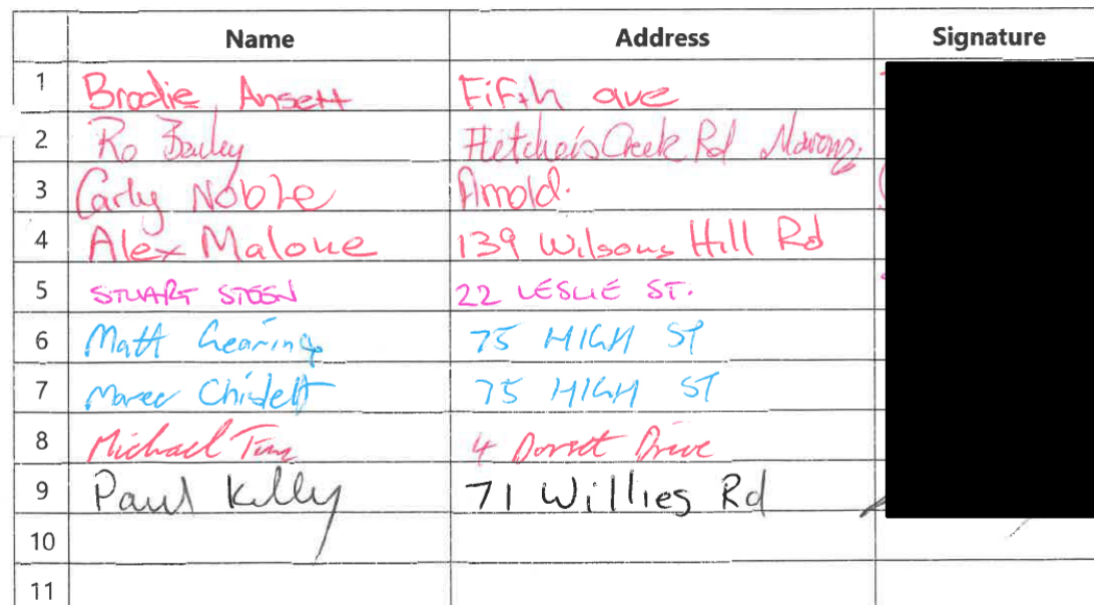 Name Address Signature
1 Brodie Ansett Fifth ave
2 Ro Bailey Creek Rd
3 Carly Noble Arnold.
4 Alex Malone 139 Wilsons Hill Rd
5 STUART STEEN 22 LESLIE ST.
6 Matt Gearing 75 HIGH ST
7 75 HIGH ST
8 Michael 4 Dorset Drive
9 Paul Kelly 71 Willies Rd
10
11